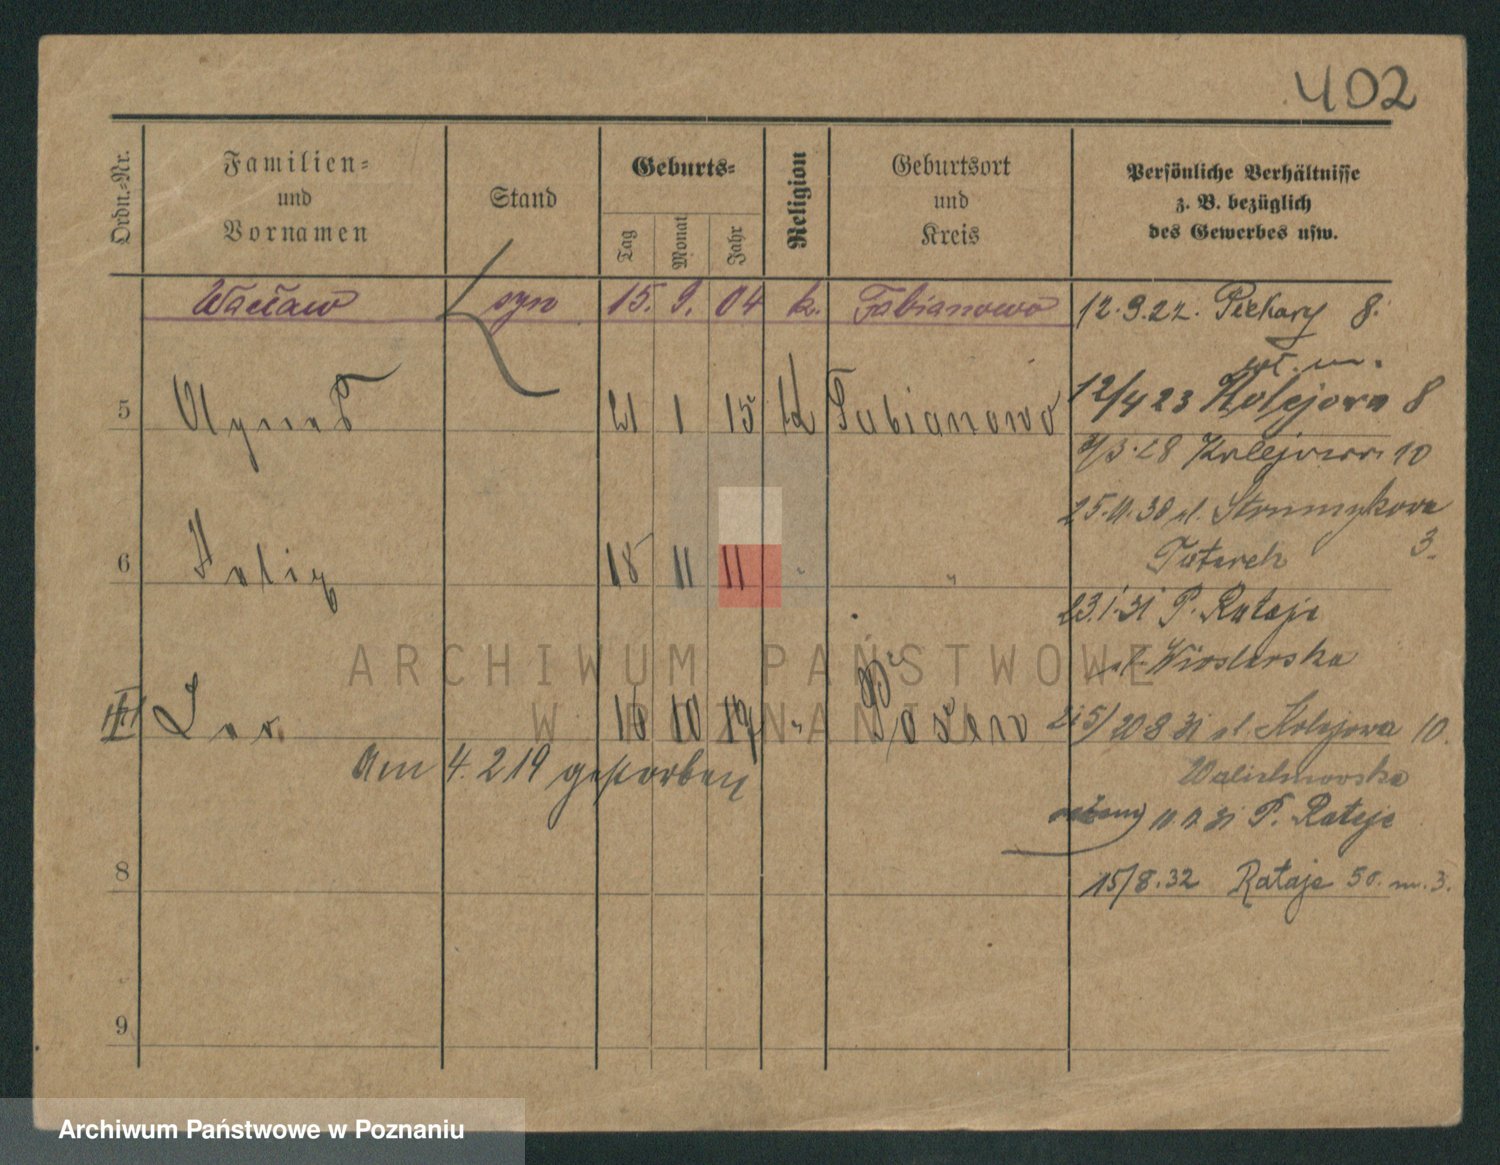 402
Ordn.=Nr.
Familien=
und
Vornamen
Stand
Geburts=
Tag
Monat
Jahr
Religion
Geburtsort
und
Kreis
Persönliche Verhältnisse
z. B. bezüglich
des Gewerbes usw.
Wacław syn 15. 9. 04 k. Fabianowo 12.9.22. Piekary 8.
5 Agnes 21 1 15 k Fabianowo 12/4 23 Kolejowa 8
28 Kolejowa 10
25.11.30 ul. Strumykowa
3.
6 18 11 11 " " Tatarek
23.1.31 P. Rataje
ul. Wioślarska
Leo 16 10 17 " Posen 20 8 31 ul. Kolejowa 10.
Am 4.2 19 gestorben
11.12 31 P. Rataje
8 15/8.32 Rataje 50. m. 3.
9
ARCHIWUM PAŃSTWOWE
W POZNANIU
Archiwum Państwowe w Poznaniu